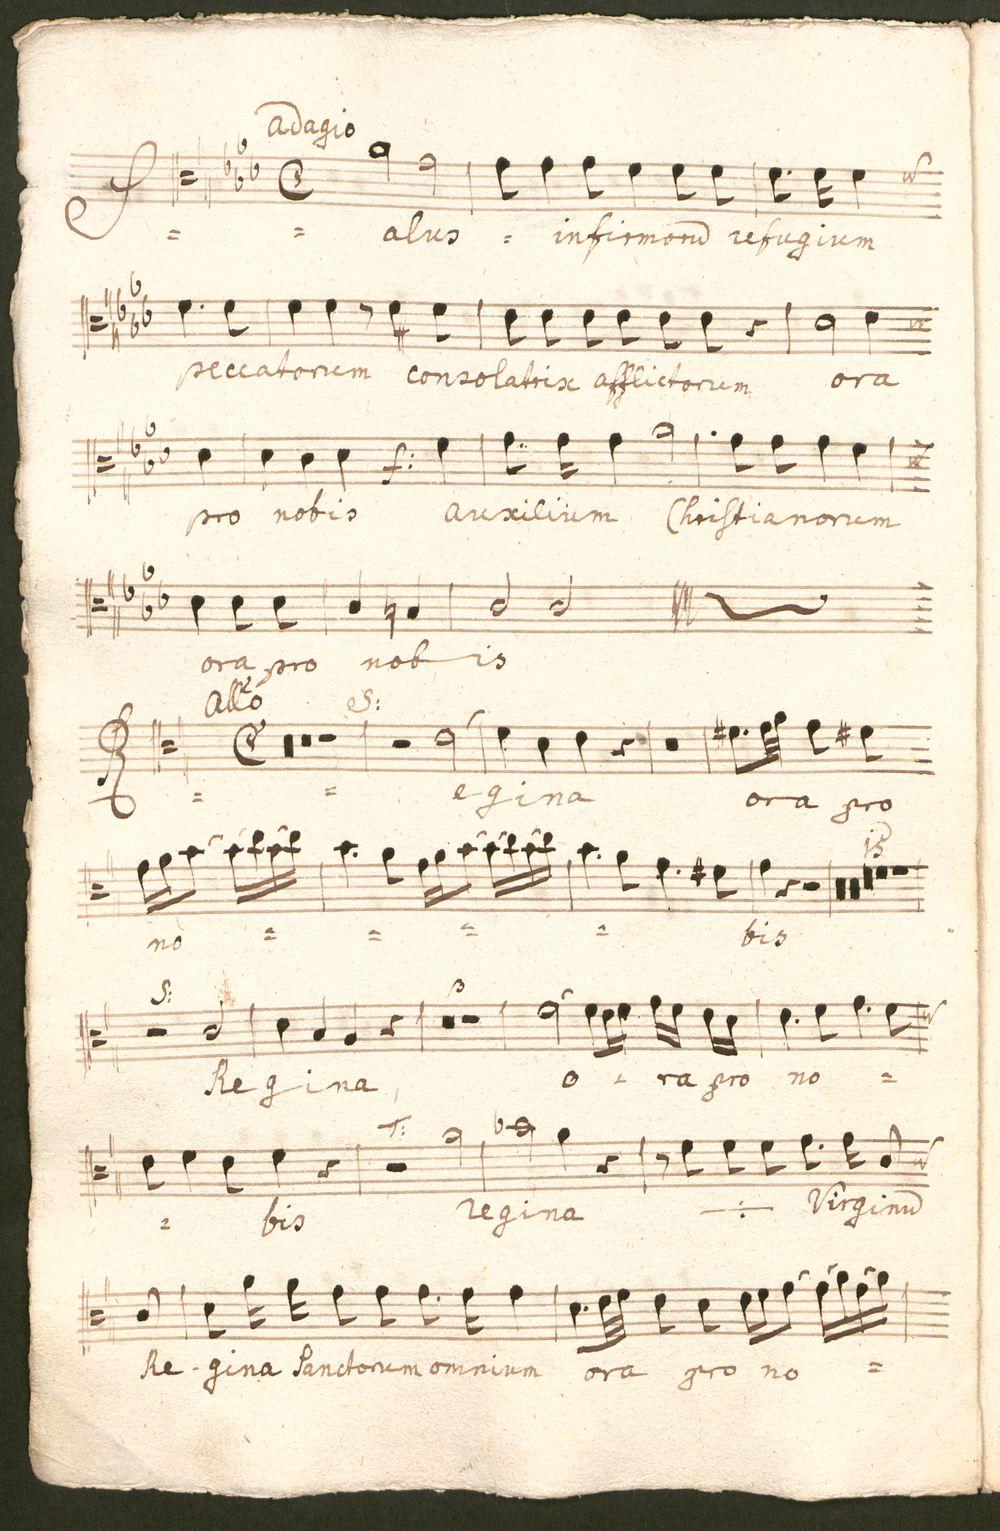 adagio
S = = alus = infirmorū refugium
peccatorum consolatrix afflictorum ora
pro nobis auxilium Christianorum
f:
ora pro nobis
Allo S:
R = = egina ora pro
13
no = = = = bis
S: 3
Regina, o - ra pro no =
T:
= bis regina Virginū
Re - gina Sanctorum omnium ora pro no =